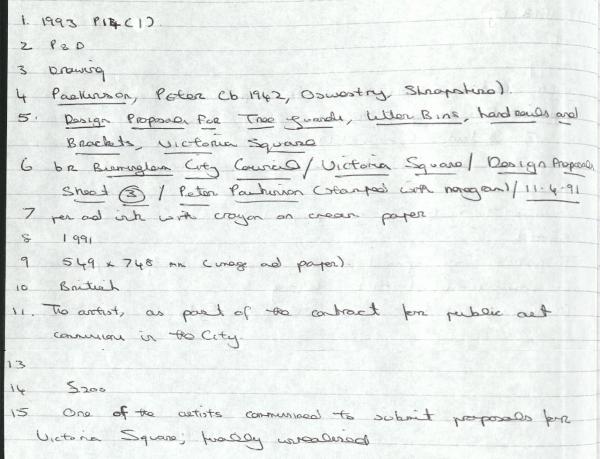 1. 1993 P14(1).
2 P&D
3 Drawing
4 Parkinson, Peter (b 1942, Oswestry, Shropshire).
5. Design Proposals For Tree guards, Litter Bins, hand rails and
Brackets, Victoria Square
6 br Birmingham City Council / Victoria Square / Design Proposals
Sheet 3 / Peter Parkinson (stamped with monogram) / 11.4.91
7 pen and ink with crayon on cream paper
8 1991
9 549 x 748 mm (image and paper).
10 British
11. The artist, as part of the contract for public art
commissions in the City.
13
14 £200
15 One of the artists commissioned to submit proposals for
Victoria Square; finally unrealised